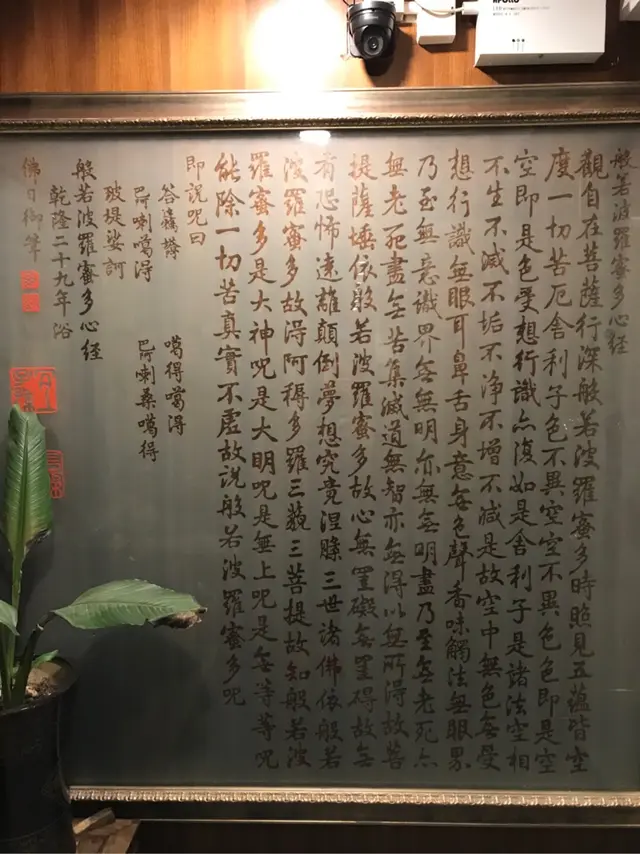 般若波羅蜜多心经
觀自在菩薩行深般若波羅蜜多時照見五蕴皆空
度一切苦厄舍利子色不異空空不異色色即是空
空即是色受想行識亦復如是舍利子是諸法空相
不生不滅不垢不净不增不減是故空中無色無受
想行識無眼耳鼻舌身意無色聲香味觸法無眼界
乃至無意識界無無明亦無無明盡乃至無老死亦
無老死盡無苦集滅道無智亦無得以無所得故菩
提薩埵依般若波羅蜜多故心無罣礙無罣碍故無
有恐怖遠離顛倒夢想究竟涅槃三世諸佛依般若
波羅蜜多故得阿耨多羅三藐三菩提故知般若波
羅蜜多是大神咒是大明咒是無上咒是無等等咒
能除一切苦真實不虚故説般若波羅蜜多咒
即説咒曰
噶得噶得
巴阿喇噶得
巴阿喇桑噶得
玻堤娑訶
般若波羅蜜多心经
乾隆二十九年浴
佛日御筆